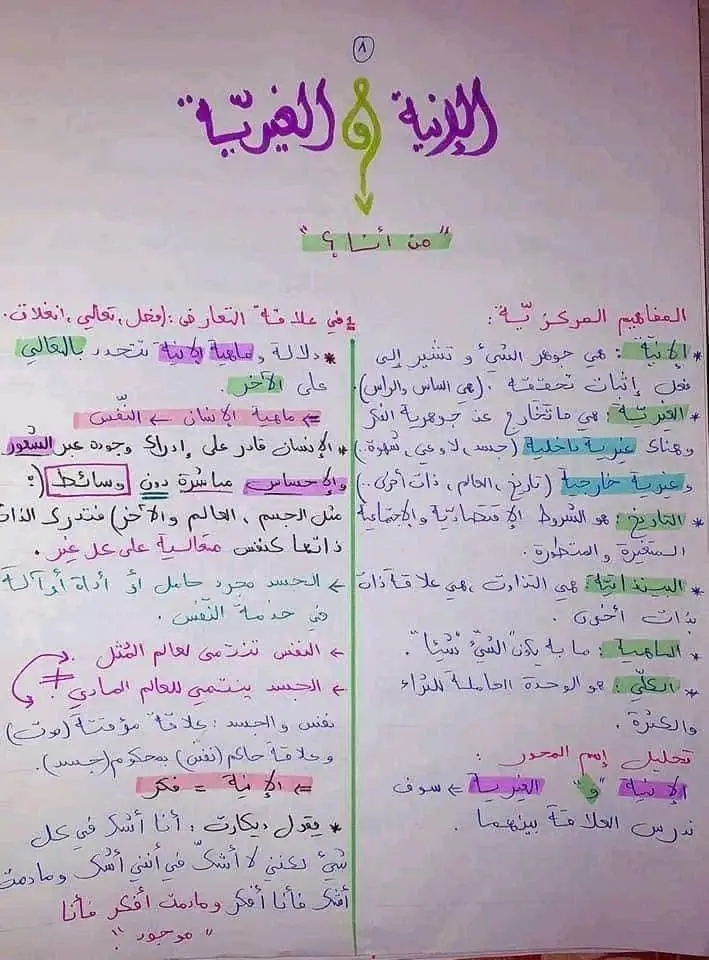 ٨
الإنية و الغيريّة
"من أنا؟"
المفاهيم المركزيّة :
* الإنيّة : هي جوهر الشيء و تشير إلى
فعل إثبات تحققه . (هي الساس والراس).
* الغيريّة : هي ما تخارج عن جوهرية الفكر
وهناك غيرية داخلية (جسد، لاوعي، شهوة..)
وغيرية خارجية (تاريخ، العالم، ذات أخرى..)
* التاريخ : هو الشروط الإقتصاديّة والإجتماعية
المتغيرة والمتطورة.
* البينذاتيّة : هي التذاوت، هي علاقة ذات
بذات أخرى .
* الماهية : ما به يكون "الشيء شيئا".
* الكلّي : هو الوحدة الحاملة للثراء
والكثرة .
تحليل إسم المحور :
الإنية "و" الغيرية ← سوف
ندرس العلاقة بينهما .
1 في علاقة التعارض : (فصل، تعالي، انغلاق.
* دلالة وماهية الإنية تتحدد بالتعالي
على الآخر .
⇐ ماهية الإنسان ← النّفس
* الإنسان قادر على إدراك وجوده عبر الشعور
والإحساس مباشرة دون وسائط (:
مثل الجسم ، العالم والآخر) فتدرك الذات
ذاتها كنفس متعالية على كل غير .
← الجسد مجرد حامل أو أداة أو آلة
في خدمة النّفس .
← النفس تنتمي لعالم المُثل
≠
← الجسد ينتمي للعالم المادي
نفس والجسد : علاقة مؤقتة (موت)
وعلاقة حاكم (نفس) بمحكوم (جسد).
⇐ الإنية = فكر
* يقول ديكارت : أنا أشك في كل
شيء لكنني لا أشكّ في أنني أشك وما دمت
أشك فأنا أفكر وما دمت أفكر فأنا
"موجود".